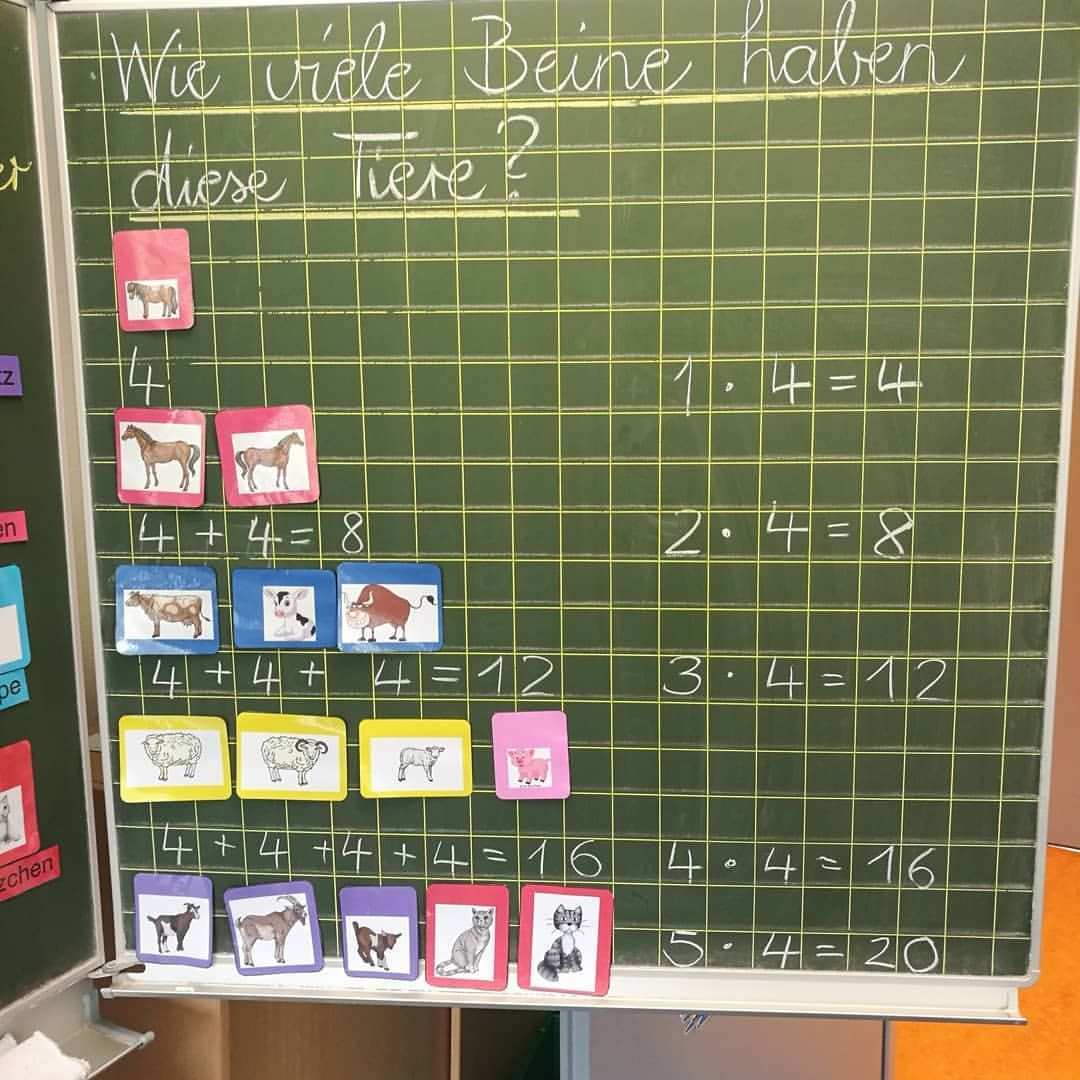 Wie viele Beine haben
diese Tiere?
er
tz
4
1 · 4 = 4
en
4 + 4 = 8
2 · 4 = 8
pe
4 + 4 + 4 = 12
3 · 4 = 12
zchen
4 + 4 + 4 + 4 = 16
4 · 4 = 16
5 · 4 = 20